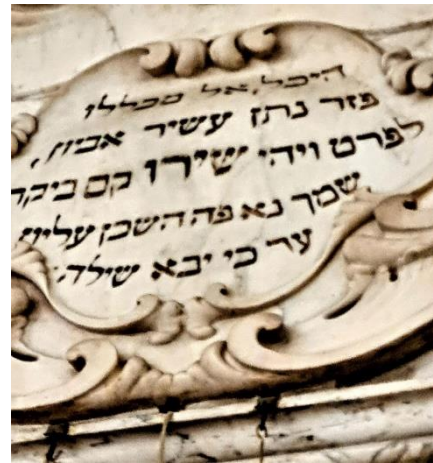 היכל אל מכללו
פזר נתן עשיר אביון
לפרט ויהי שירו קם ביקר
שמך נא פה השכן עליון
עד כי יבא שילה